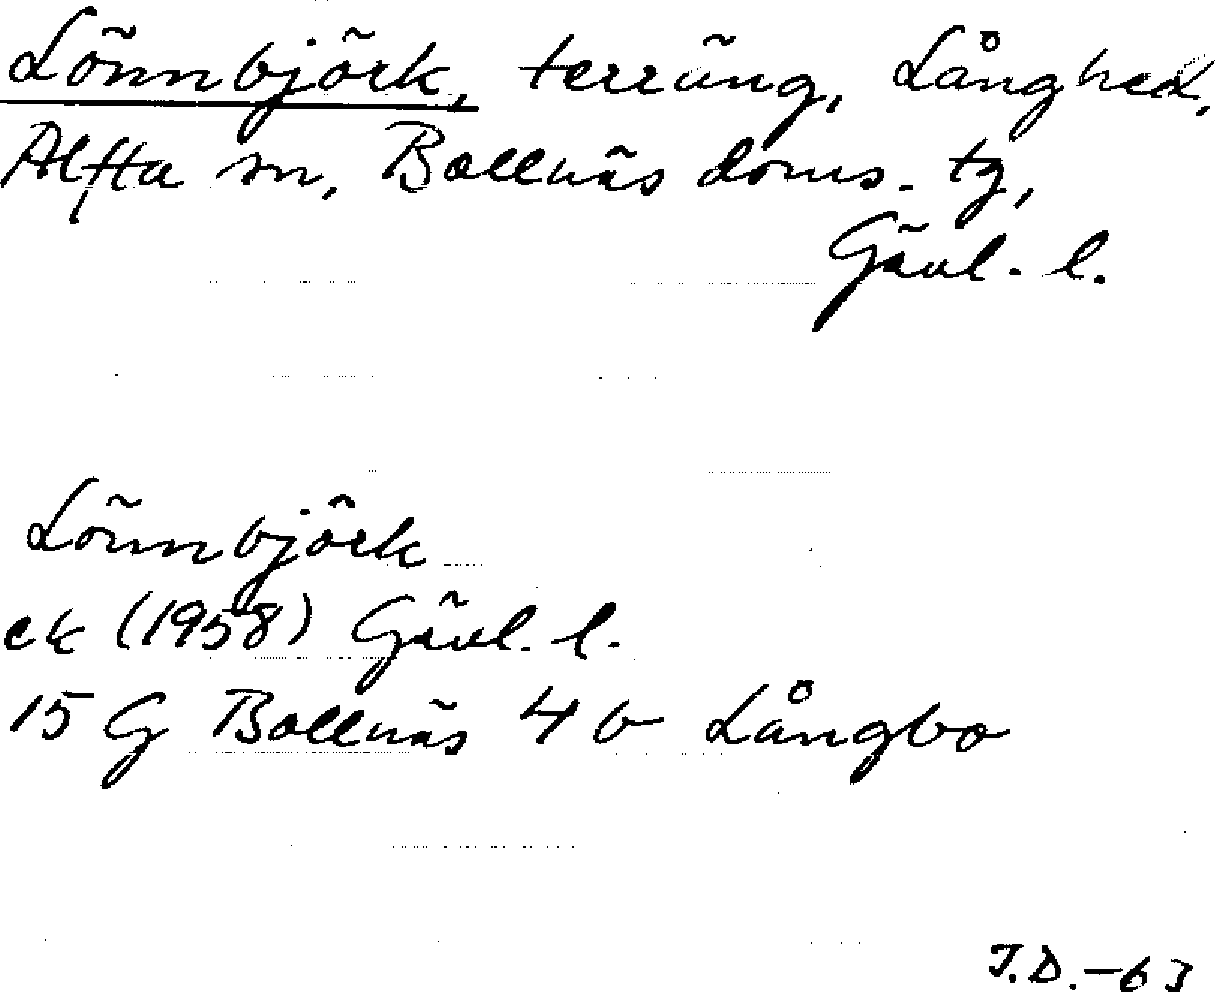 Lönnbjörk, terräng, Långhed,
Alfta sn, Bollnäs doms. tg,
Gävl. l.
Lönnbjörk
ek (1958) Gävl. l.
15 G Bollnäs 4 b Långbo
T.D.-63